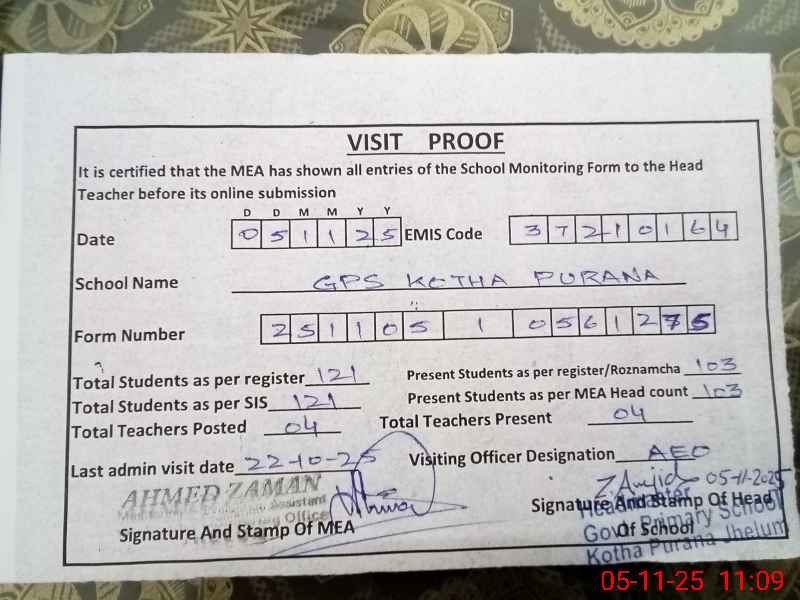 VISIT PROOF
It is certified that the MEA has shown all entries of the School Monitoring Form to the Head
Teacher before its online submission
D D M M Y Y
Date 051125 EMIS Code 37210164
School Name GPS KOTHA PURANA
Form Number 251105 1 0561275
Total Students as per register 121 Present Students as per register/Roznamcha 103
Total Students as per SIS 121 Present Students as per MEA Head count 103
Total Teachers Posted 04 Total Teachers Present 04
Last admin visit date 22-10-25 Visiting Officer Designation AEO
AHMED ZAMAN
Assistant
Office
Signature And Stamp Of MEA
ZAmjid 05-11-2025
Signature And Stamp Of Head
Of School
Headmaster
Govt Primary School
Kotha Purana Jhelum
05-11-25 11:09